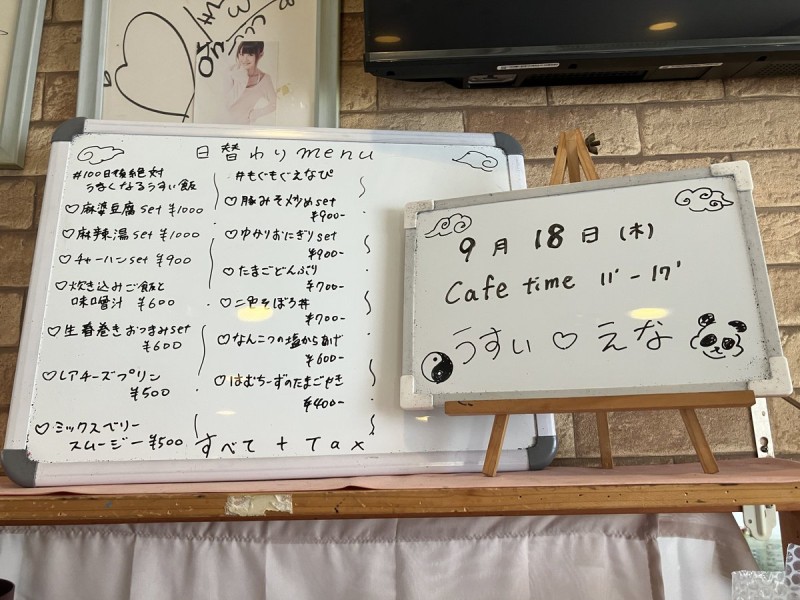 日替わりmenu
#100日後絶対
うまくなるうすい飯
♡麻婆豆腐set ¥1000
♡麻辣湯set ¥1000
♡チャーハンset ¥900
♡炊き込みご飯と
味噌汁 ¥600
♡生春巻きおつまみset
¥600
♡レアチーズプリン
¥500
♡ミックスベリー
スムージー ¥500
#もぐもぐえなぴ
♡豚みそ炒めset
¥900-
♡ゆかりおにぎりset
¥900-
♡たまごどんぶり
¥700-
♡二色そぼろ丼
¥700-
♡なんこつの塩からあげ
¥600-
♡はむちーずのたまごやき
¥400-
すべて + Tax
9月18日(木)
Cafe time 11'-17'
うすい♡えな